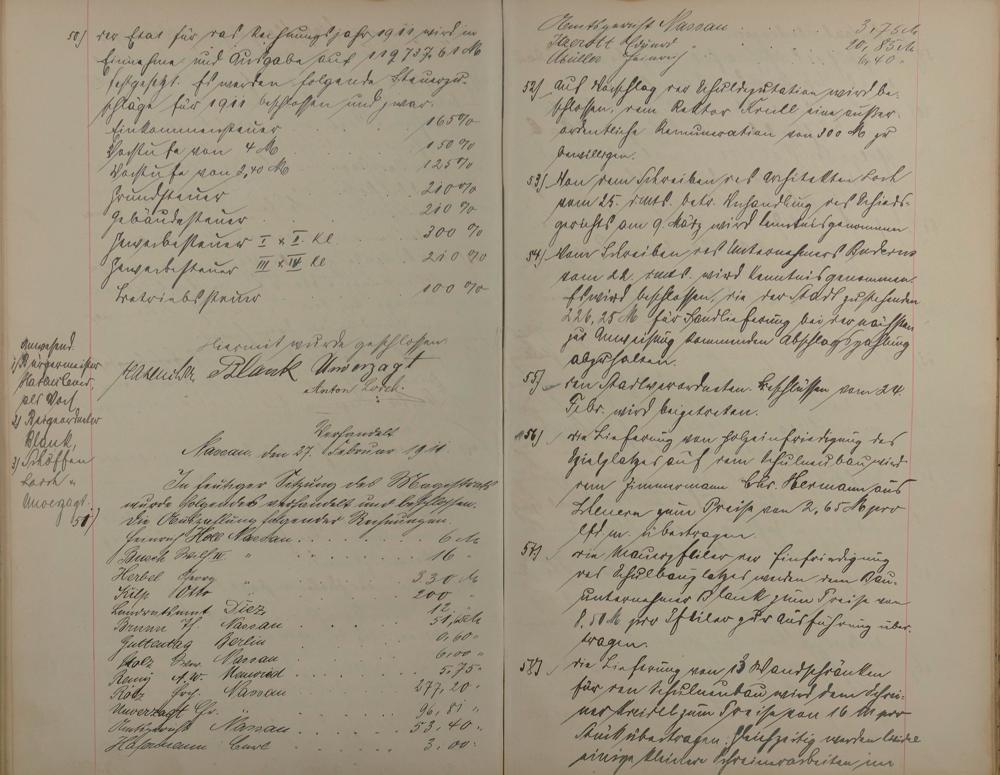 50) der Etat für das Rechnungsjahr 1911 wird in
Einnahme und Ausgabe auf 119737,61 M
festgesetzt. Es werden folgende Steuerzu-
schläge für 1911 beschlossen und zwar.
Einkommensteuer 165%
Vorstufe von 4 M 150%
Vorstufe von 2,40 M 125%
Grundsteuer 210%
Gebäudesteuer 210%
Gewerbesteuer I & II. Kl 300%
Gewerbesteuer III & IV Kl 210%
Betriebssteuer 100%
Hiermit wurde geschlossen
Blank Unverzagt
Anton
Anwesend
1) Bürgermeister
als Vors.
2) Beigeordneter
Blank,
3) Schöffen
u.
Unverzagt
Verhandelt
Nassau, den 27. Februar 1911.
In heutiger Sitzung des Magistrats
wurde folgendes verhandelt und beschlossen.
51) Die Auszahlung folgender Rechnungen.
Heinrich Holl Nassau 6 M
Busch Wilh. " 16 "
Herbel Georg " 330 M
Otto " 200 "
Landratsamt Diez 12
Brunn Nassau
Guttentag Berlin 0,60 "
Stolz Nassau 6,00 "
Remy A. W. 5,75 "
Nassau 277,20 "
Unverzagt Chr. 96,81 "
Nassau 53,40 "
Carl 3,00 "
Amtsgericht Nassau 3,75 M
20,85 M
Heinrich 6,40 "
52) Auf Vorschlag der Schuldeputation wird be-
schlossen, dem Rektor Krull eine außer-
ordentliche Remuneration von 300 M zu
bewilligen.
53) Von dem Schreiben des Architekten
vom 25. dmts. betr. Verhandlung des Schieds-
gerichts am 9. März wird Kenntnis genommen
54) Vom Schreiben des Unternehmers
vom 22. dmts. wird Kenntnis genommen.
Es wird beschlossen, die der Stadt zustehenden
226,25 M für Sandlieferung bei der nächsten
zur Anweisung kommenden Abschlagszahlung
abzuhalten.
55) den Stadtverordneten-Beschlüssen vom 24.
Febr. wird beigetreten.
56) die Lieferung von Holzeinfriedigung des
Spielplatzes auf dem Schulneubau wird
dem Zimmermann Chr. Hermann aus
zum Preise von 2,65 M pro
lfd. m. übertragen.
57) die Mauerpfeiler der Einfriedigung
des Schulbauplatzes werden dem Bau-
unternehmer Blank zum Preise von
8,50 M pro Pfeiler zur Ausführung über-
tragen.
58) die Lieferung von 13 Wandschränken
für den Schulneubau wird dem Schrei-
ner zum Preise von 16 M pro
Stück übertragen. Gleichzeitig werden
einige kleinere Schreinerarbeiten im